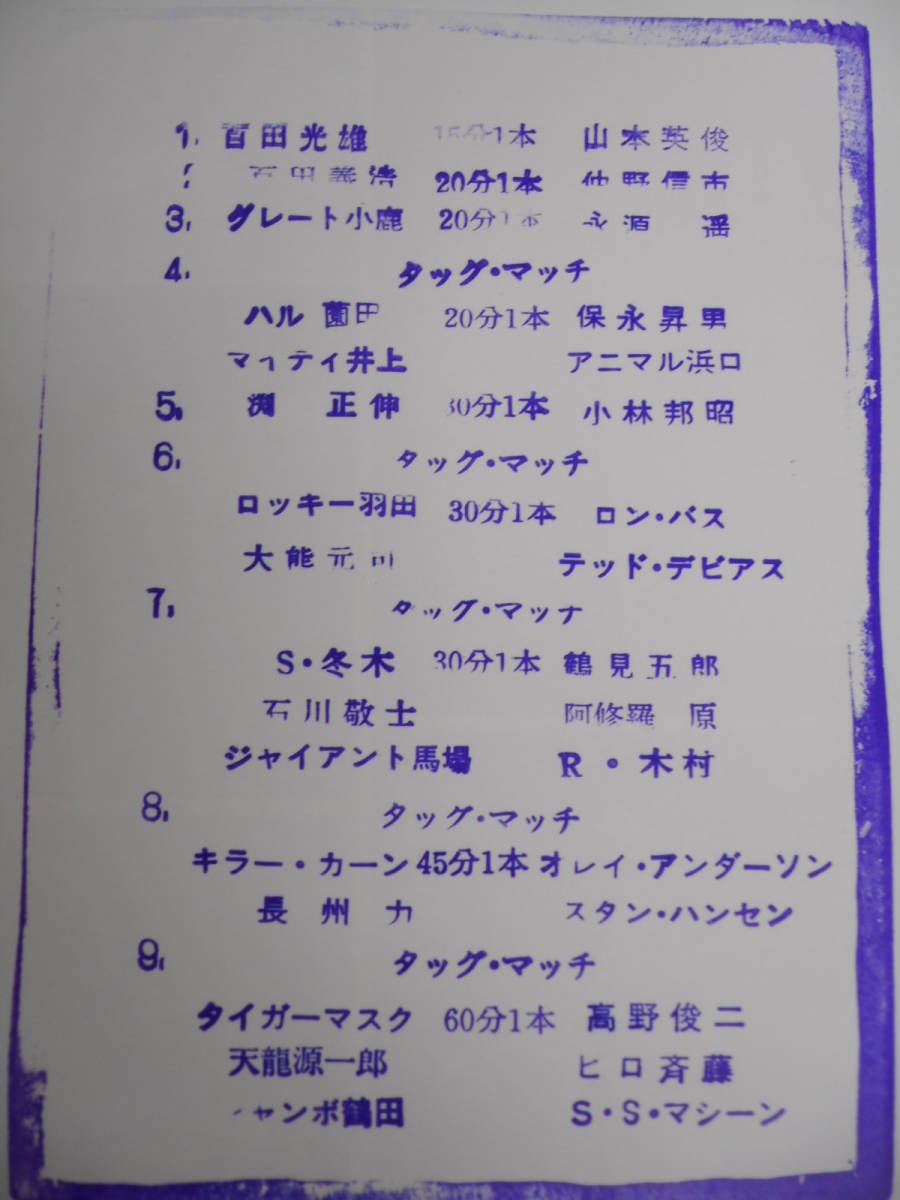 1. 百田光雄 15分1本 山本英俊
2 石田義浩 20分1本 仲野信市
3. グレート小鹿 20分1本 永源 遥
4. タッグ・マッチ
ハル薗田 20分1本 保永昇男
マイティ井上 アニマル浜口
5. 渕 正伸 30分1本 小林邦昭
6. タッグ・マッチ
ロッキー羽田 30分1本 ロン・バス
大熊元司 テッド・デビアス
7. タッグ・マッチ
S・冬木 30分1本 鶴見五郎
石川敬士 阿修羅 原
ジャイアント馬場 R・木村
8. タッグ・マッチ
キラー・カーン 45分1本 オレイ・アンダーソン
長州力 スタン・ハンセン
9. タッグ・マッチ
タイガーマスク 60分1本 高野俊二
天龍源一郎 ヒロ斉藤
ジャンボ鶴田 S・S・マシーン